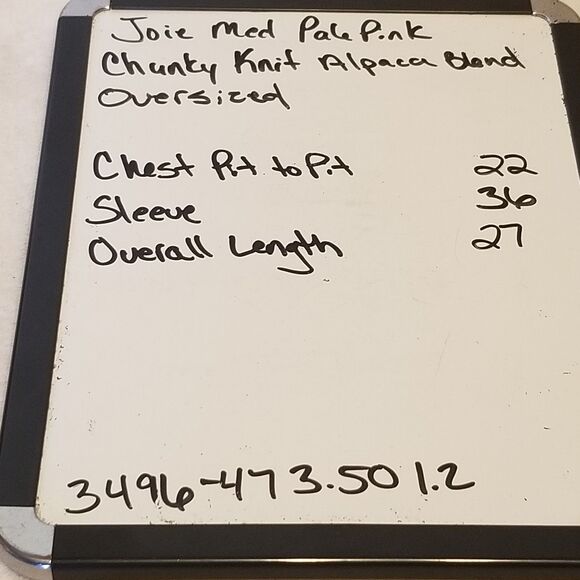 Joie Med Pale Pink
Chunky Knit Alpaca Blend
Oversized
Chest Pit to Pit 22
Sleeve 36
Overall Length 27
3496-47 3.50 1.2